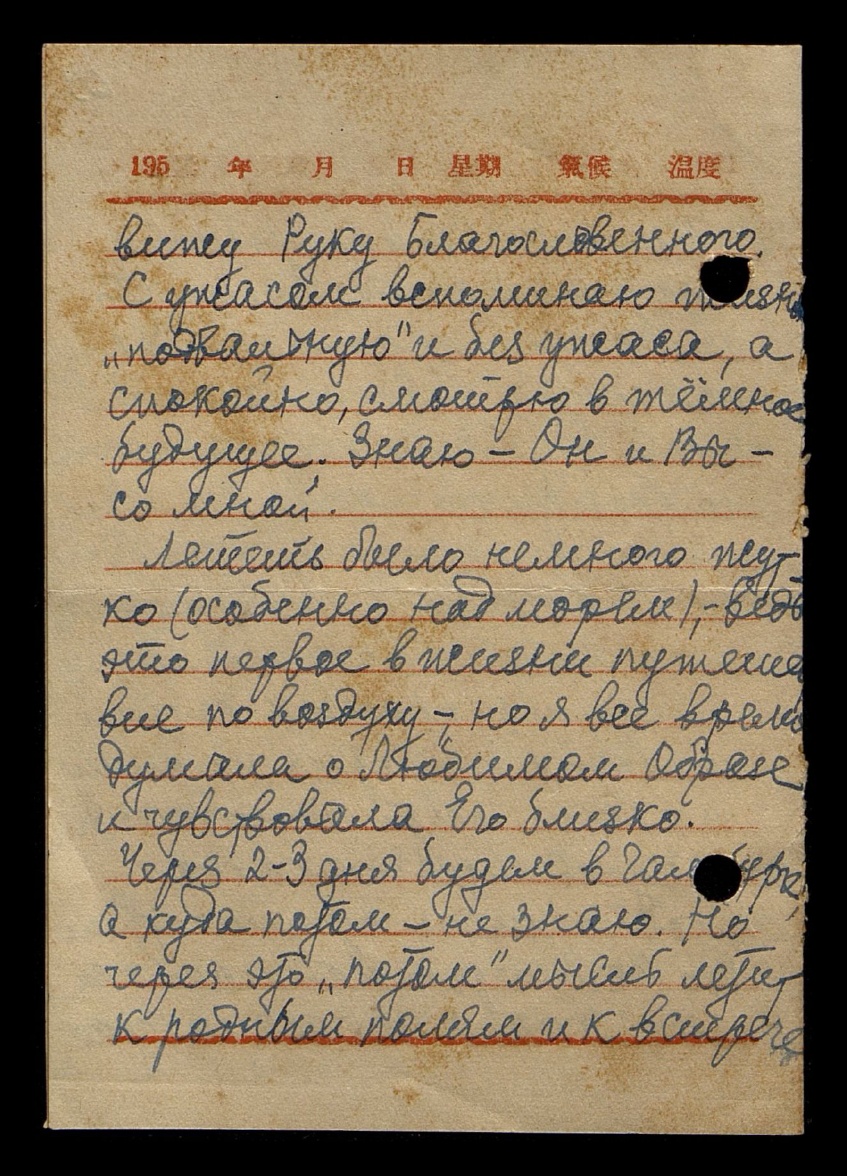 195 年 月 日 星期 氣候 温度
вижу Руку Благословенного.
С ужасом вспоминаю жизнь
„подвальную" и без ужаса, а
спокойно, смотрю в тёмное
будущее. Знаю – Он и Вы –
со мной.
Лететь было немного жут-
ко (особенно над морем), – ведь
это первое в жизни путеше
вие по воздуху –, но я все время
думала о Любимом Образе
и чувствовала Его близко.
Через 2-3 дня будем в
а куда потом – не знаю. Но
через это „потом" мысль летит
к родным полям и к встрече